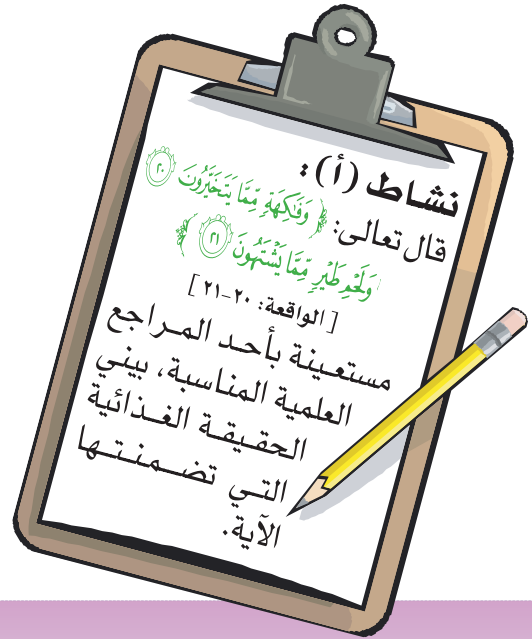 نشاط (أ) :
قال تعالى: ﴿ وَفَاكِهَةٍ مِّمَّا يَتَخَيَّرُونَ ٢٠
وَلَحْمِ طَيْرٍ مِّمَّا يَشْتَهُونَ ٢١ ﴾
[ الواقعة: ٢٠-٢١ ]
مستعينة بأحد المراجع
العلمية المناسبة، بيني
الحقيقة الغذائية
التي تضمنتها
الآية.